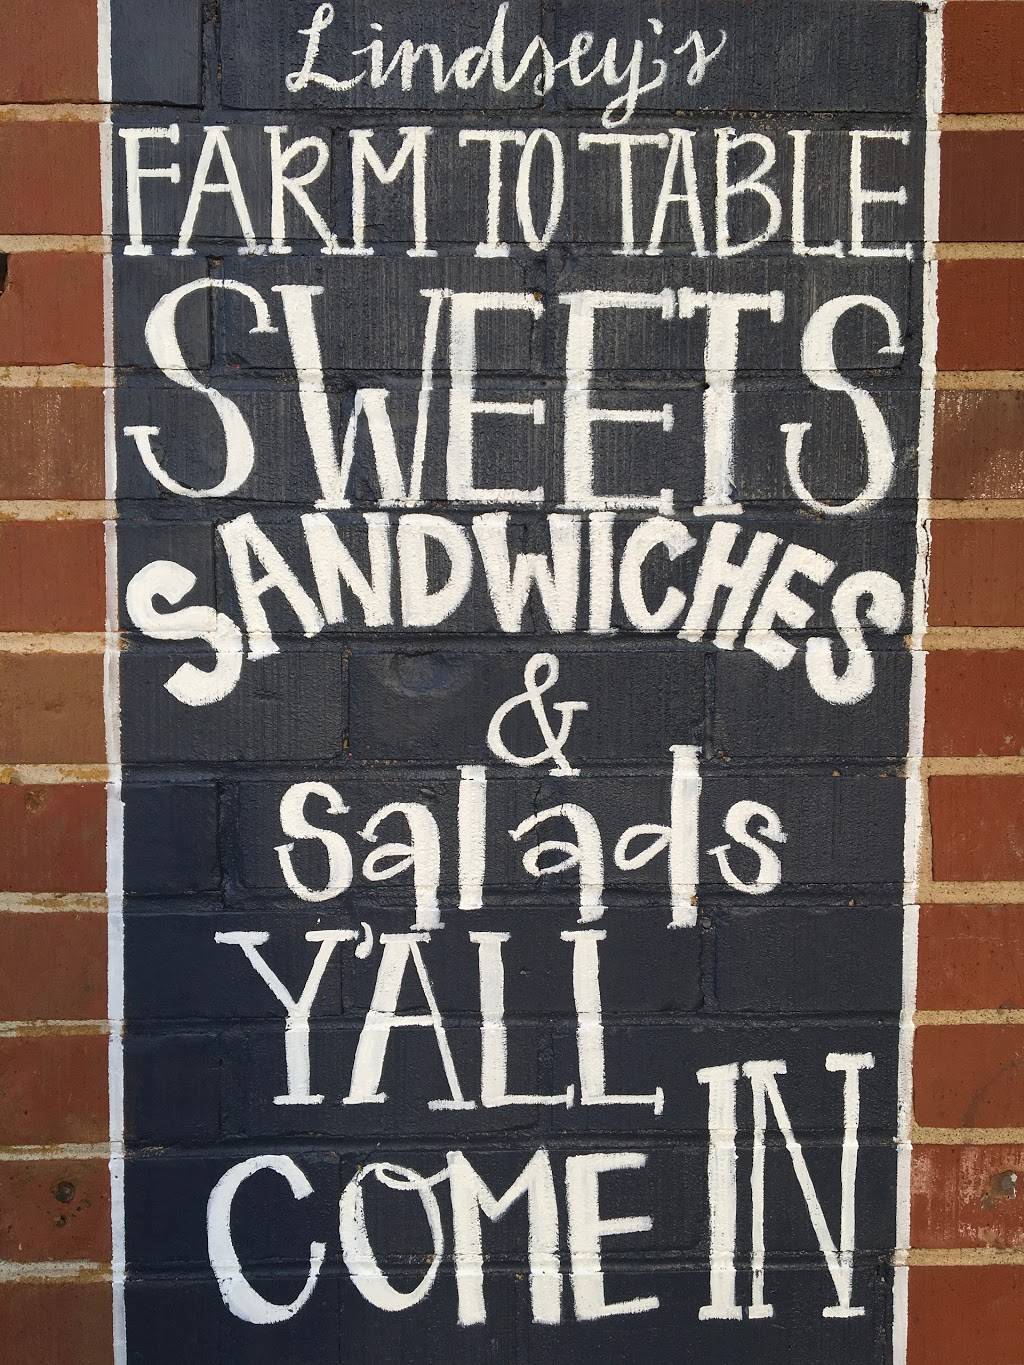 Lindsey's
FARM TO TABLE
SWEETS
SANDWICHES
&
salads
Y'ALL
COME IN